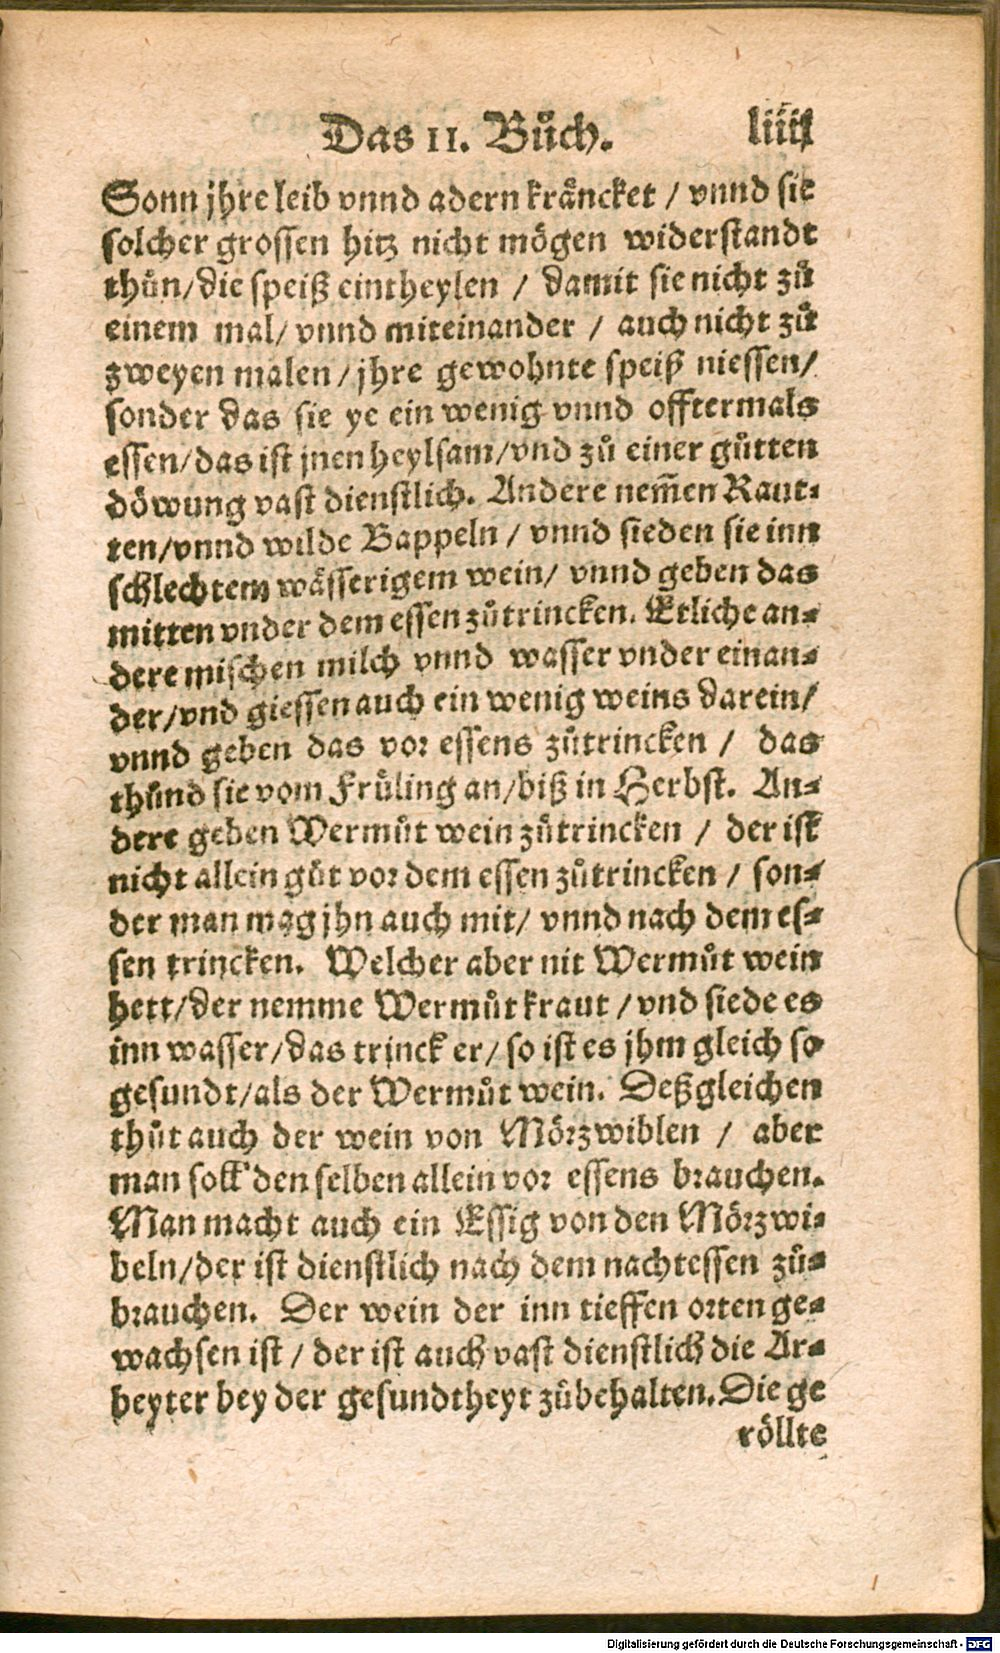 Das II. Bůch. liiij
Sonn jhre leib vnnd adern kräncket / vnnd sie
solcher grossen hitz nicht mögen widerstandt
thůn/die speiß eintheylen / damit sie nicht zů
einem mal/ vnnd miteinander / auch nicht zů
zweyen malen / jhre gewohnte speiß niessen/
sonder das sie ye ein wenig vnnd offtermals
essen/das ist jnen heylsam/vnd zů einer gůtten
döwung vast dienstlich. Andere nem̃en Raut-
ten/vnnd wilde Bappeln / vnnd sieden sie inn
schlechtem wässerigem wein/ vnnd geben das
mitten vnder dem essen zůtrincken. Etliche an-
dere mischen milch vnnd wasser vnder einan-
der/vnd giessen auch ein wenig weins darein/
vnnd geben das vor essens zůtrincken / das
thůnd sie vom Früling an/biß in Herbst. An-
dere geben Wermůt wein zůtrincken / der ist
nicht allein gůt vor dem essen zůtrincken / son-
der man mag jhn auch mit/ vnnd nach dem es-
sen trincken. Welcher aber nit Wermůt wein
hett/der nemme Wermůt kraut / vnd siede es
inn wasser/das trinck er/ so ist es jhm gleich so
gesundt/als der Wermůt wein. Deßgleichen
thůt auch der wein von Mörzwiblen / aber
man soll den selben allein vor essens brauchen.
Man macht auch ein Essig von den Mörzwi-
beln/der ist dienstlich nach dem nachtessen zů-
brauchen. Der wein der inn tieffen orten ge-
wachsen ist / der ist auch vast dienstlich die Ar-
beyter bey der gesundtheyt zůbehalten. Die ge
röllte
Digitalisierung gefördert durch die Deutsche Forschungsgemeinschaft - DFG